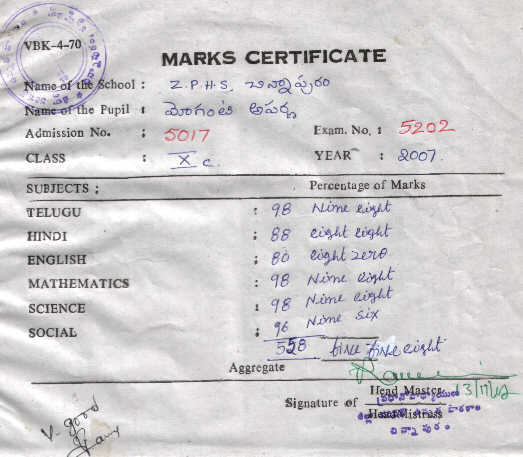 VBK-4-70
MARKS CERTIFICATE
Name of the School : Z.P.H.S, చిన్నాపురం
Name of the Pupil : మోగంటి అపర్ణ
Admission No. : 5017 Exam. No. : 5202
CLASS : X c. YEAR : 2007.
SUBJECTS : Percentage of Marks
TELUGU : 98 Nine eight
HINDI : 88 eight eight
ENGLISH : 80 eight zero
MATHEMATICS : 98 Nine eight
SCIENCE : 98 Nine eight
SOCIAL : 96 Nine six
558 five five eight
Aggregate
Head Master
Signature of
Head Mistress
చిన్నాపురం
V. good